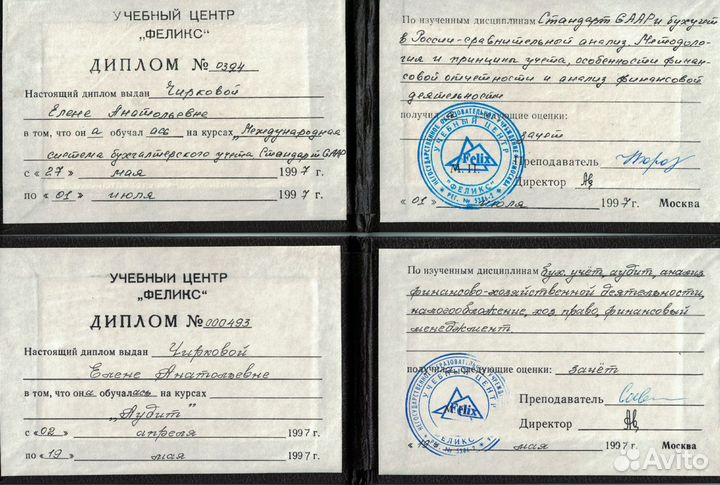 УЧЕБНЫЙ ЦЕНТР
„ФЕЛИКС“
ДИПЛОМ № 0394
Настоящий диплом выдан Чирковой
Елене Анатольевне
в том, что он а обучал ась на курсах „Международная
система бухгалтерского учета Стандарт GAAP
с « 27 » мая 1997 г.
по « 01 » июля 1997 г.
По изученным дисциплинам Стандарт GAAP и бухучет
в России-сравнительный анализ. Методоло-
гия и принципы учета, особенности финан-
совой отчетности и анализ финансовой
деятельности
получила следующие оценки:
зачёт
М. П.
Преподаватель
Директор
« 01 » июля 1997 г. Москва
НЕГОСУДАРСТВЕННОЕ ОБРАЗОВАТЕЛЬНОЕ УЧРЕЖДЕНИЕ
УЧЕБНЫЙ ЦЕНТР
Felix
"ФЕЛИКС"
МОСКВА
УЧЕБНЫЙ ЦЕНТР
„ФЕЛИКС“
ДИПЛОМ № 000493
Настоящий диплом выдан Чирковой
Елене Анатольевне
в том, что она обучалась на курсах
„Аудит“
с «02 » апреля 1997 г.
по «19 » мая 1997 г.
По изученным дисциплинам бух. учёт, аудит, анализ
финансово-хозяйственной деятельности,
налогообложение, хоз. право, финансовый
менеджмент.
получила следующие оценки: зачёт
Преподаватель
Директор
« 19 » мая 1997 г. Москва
УЧЕБНЫЙ ЦЕНТР
Felix
"ФЕЛИКС"
Avito